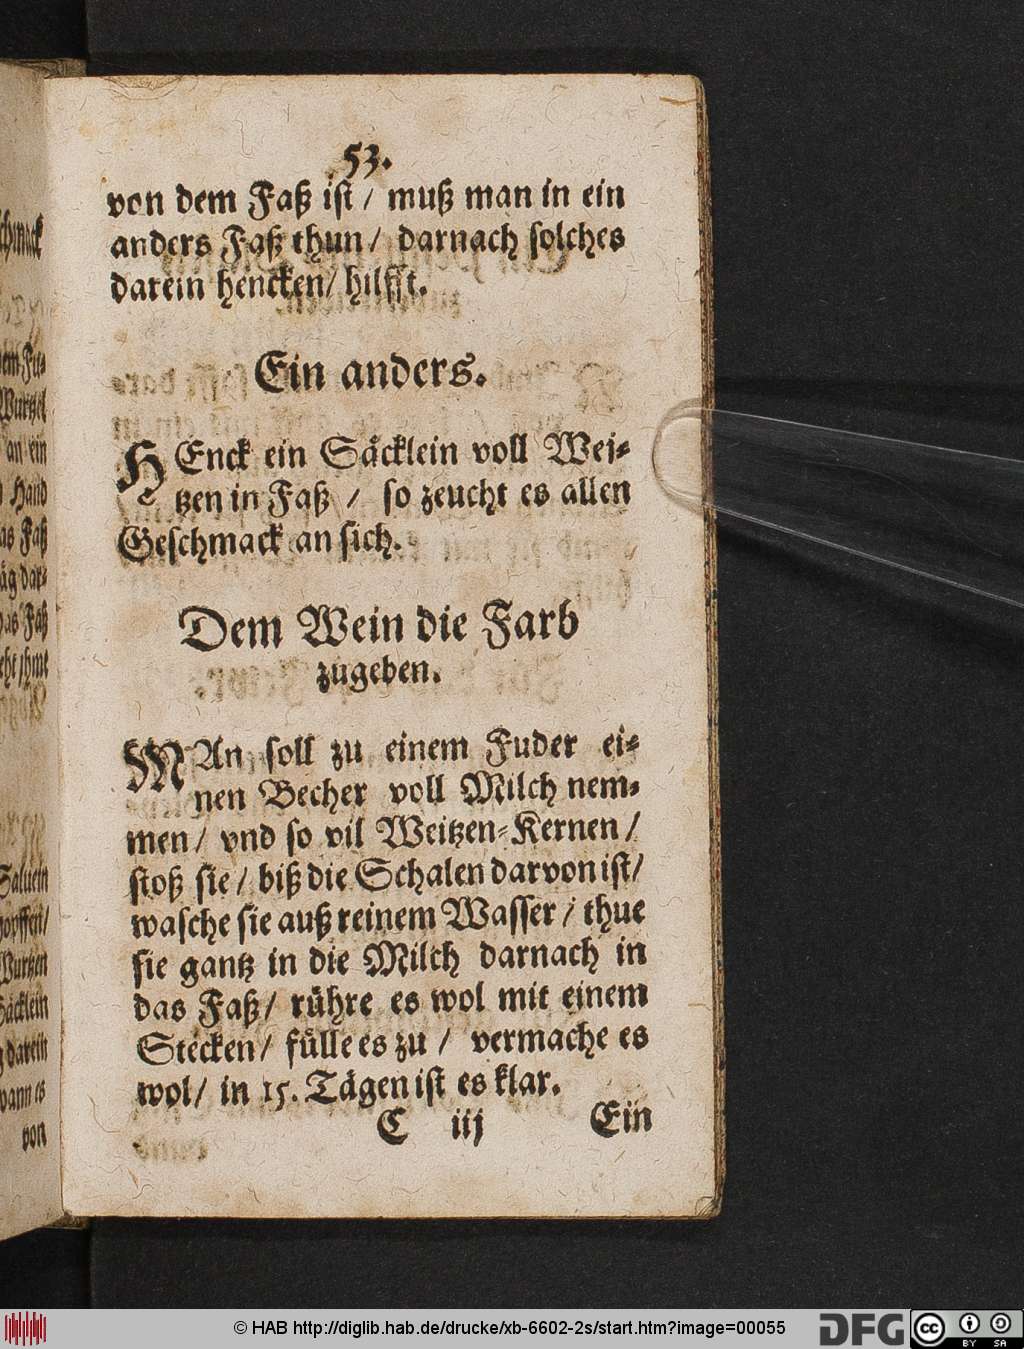 53.
von dem Faß ist / muß man in ein
anders Faß thun / darnach solches
darein hencken / hilfft.
Ein anders.
HEnck ein Säcklein voll Wei-
tzen in Faß / so zeucht es allen
Geschmack an sich.
Dem Wein die Farb
zugeben.
MAn soll zu einem Fuder ei-
nen Becher voll Milch nem-
men / vnd so vil Weitzen-Kernen /
stoß sie / biß die Schalen darvon ist /
wasche sie auß reinem Wasser / thue
sie gantz in die Milch darnach in
das Faß / rühre es wol mit einem
Stecken / fülle es zu / vermache es
wol / in 15. Tägen ist es klar.
C iij Ein
an ein
Hand
as Faß
das Faß
Säcklein
darein
wann es
von
© HAB http://diglib.hab.de/drucke/xb-6602-2s/start.htm?image=00055
DFG
cc
BY SA